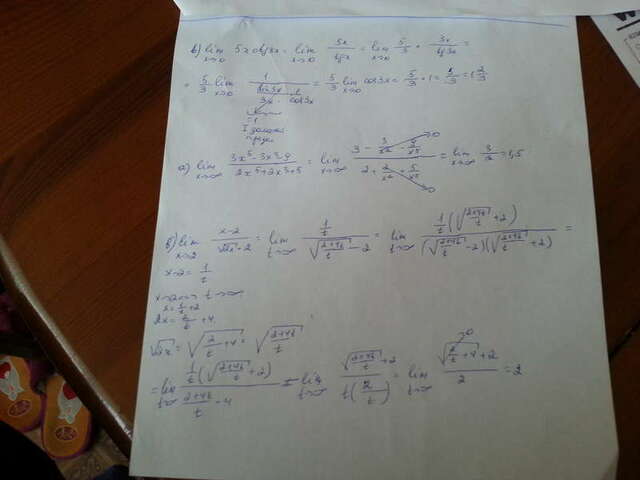 в) lim x→0 5x ctg3x = lim x→0 5x/tg3x = lim x→0 5/3 · 3x/tg3x =
= 5/3 lim x→0 1/(sin3x/3x · 1/cos3x) = 5/3 lim x→0 cos3x = 5/3 · 1 = 5/3 = 1 2/3
=1
I
а) lim x→∞ (3x⁵-3x³-9)/(2x⁵+2x³+5) = lim x→∞ (3 - 3/x² - 9/x⁵)/(2 + 2/x² + 5/x⁵) = lim x→∞ 3/2 = 1,5
→0
→0
б) lim x→2 (x-2)/(√2x-2) = lim t→∞ (1/t)/(√((2+4t)/t) - 2) = lim t→∞ (1/t(√((2+4t)/t)+2))/((√((2+4t)/t)-2)(√((2+4t)/t)+2)) =
x-2 = 1/t
x→2 => t→∞
x = 1/t+2
2x = 2/t+4
√2x = √(2/t+4) = √((2+4t)/t)
= lim t→∞ (1/t(√((2+4t)/t)+2))/((2+4t)/t-4) = lim t→∞ (√((2+4t)/t)+2)/(t(2/t)) = lim t→∞ (√(2/t+4)+2)/2 = 2
→0